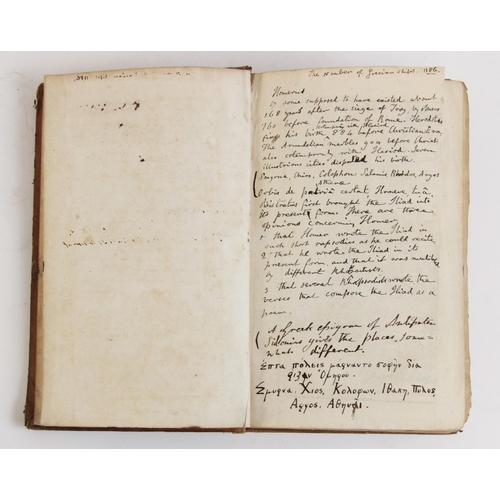 The Number of Grecian ships. 1186.
Homerus
by some supposed to have existed about
168 years after the siege of Troy, by others
160 before foundation of Rome. Herodotus
his birth 884 before Christian Era,
The Arundelian marbles 907 before Christ
also cotemporary with Hesiod. Seven
illustrious cities disputed his birth.
Smyrna, Chios, Colophon Salamis Rhodos, Argos
Athenæ
Orbis de patria certat Homere tuâ.
Pisistratus first brought the Iliad into
its present form. There are three
opinions concerning Homer.
1 that Homer wrote the Iliad in
such short rapsodies as he could recite
2 that he wrote the Iliad in its
present form and that it was mutilated
by different Rhapsodists.
3 that several Rhapsodists wrote the
verses that compose the Iliad as a
poem.
A Greek epigram of Antipater
Sidonius gives the places, some-
what different.
Επτα πολεις μαρναντο σοφην δια
ριζαν Ομηρου.
Σμυρνα, Χιος, Κολοφων, Ιθακη, Πυλος,
Αργος, Αθηναι.